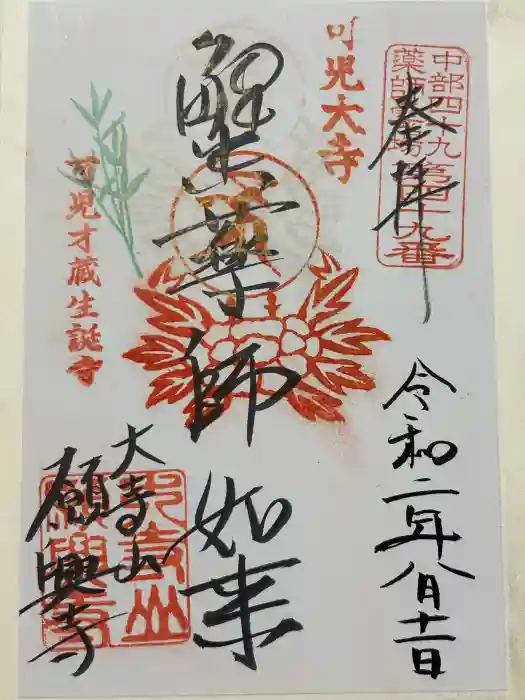 中部四十九
薬師霊場第四十九番
奉拝
令和二年八月十一日
可児大寺
蟹薬師如来
可児才蔵生誕寺
大寺山
願興寺